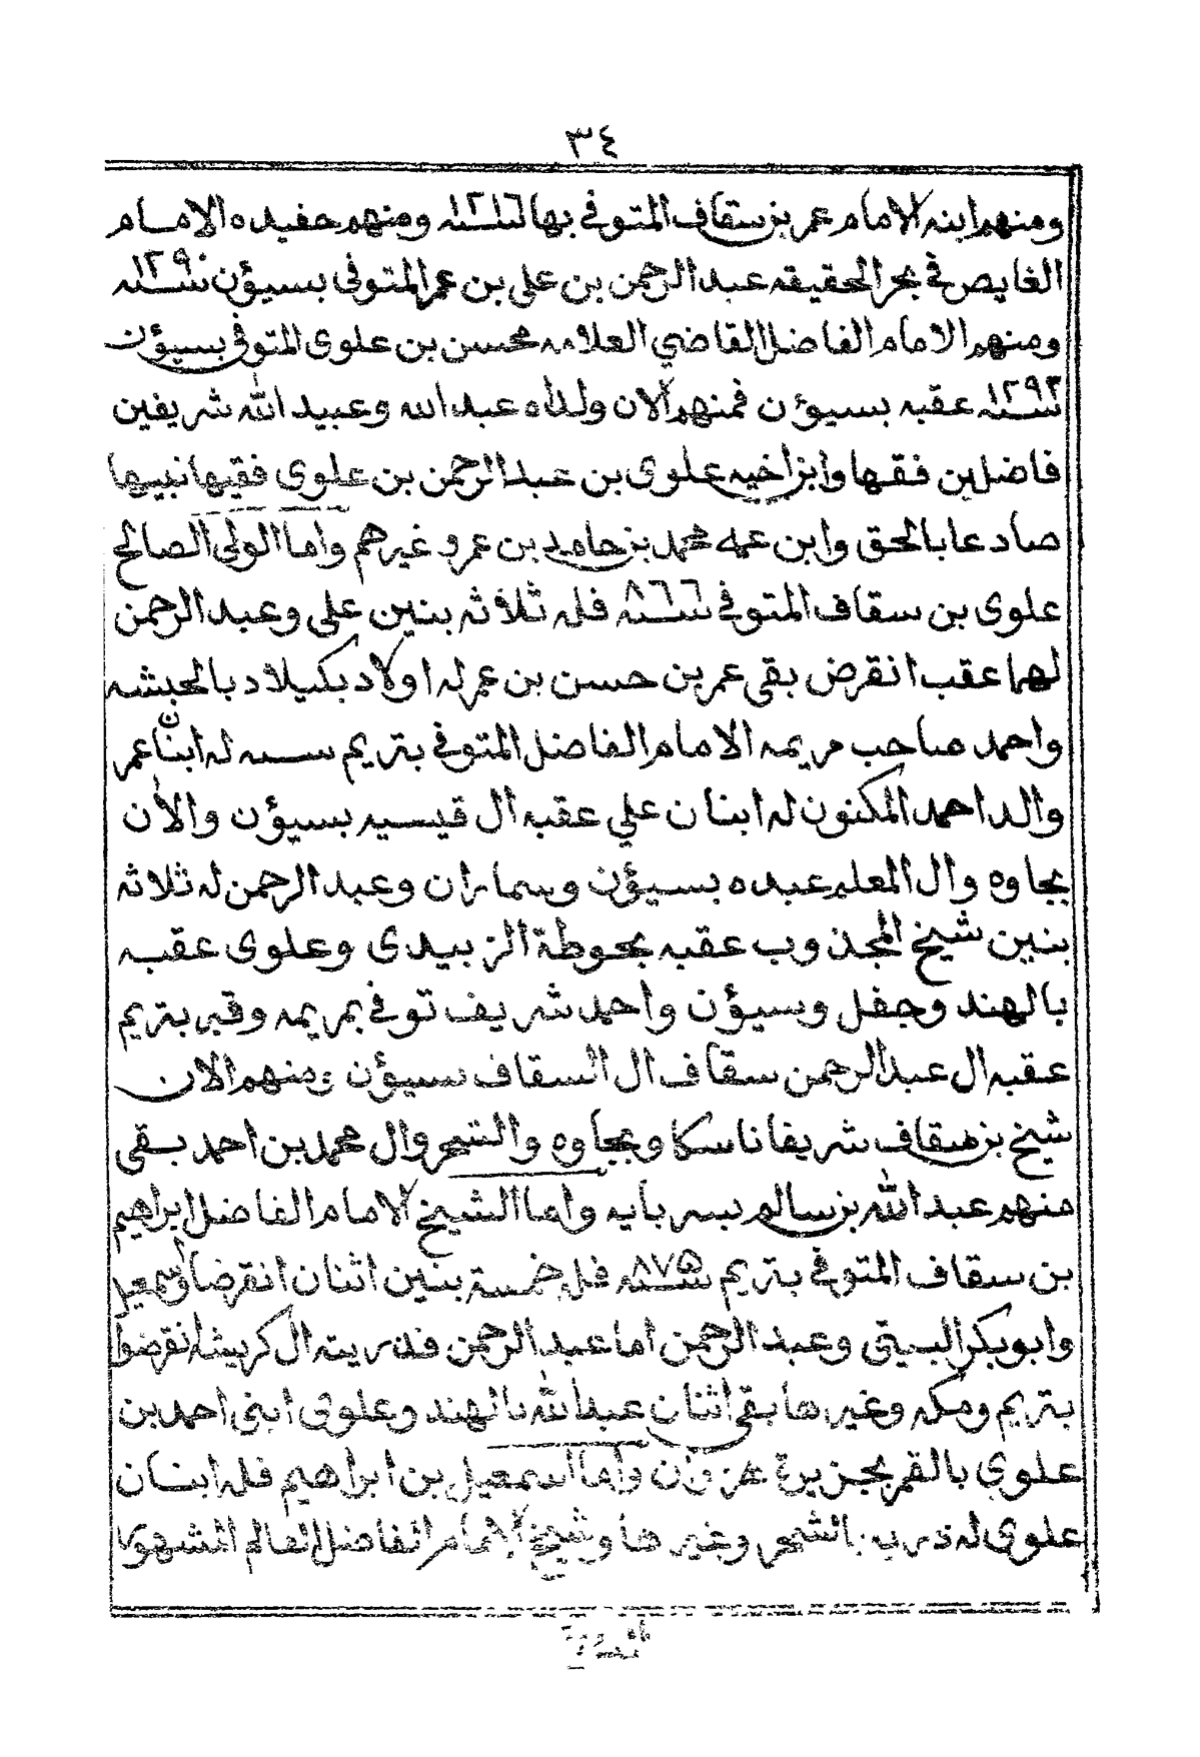 ٣٤
ومنهم ابنه الامام عمر بن سقاف المتوفي بها سنة ١٢١٦ ومنهم حفيده الامام
الغايص في بحر الحقيقه عبد الرحمن بن علي بن عمر المتوفى بسيؤن سنة ١٢٩٠
ومنهم الامام الفاضل القاضي العلامه محسن بن علوى المتوفي بسيؤن
سنة ١٢٩٣ عقبه بسيؤن فمنهم الان ولداه عبد الله وعبيد الله شريفين
فاضلين فقها وابن اخيه علوى بن عبد الرحمن بن علوى فقيها نبيها
صادعا بالحق وابن عمه محمد بن حامد بن عمر وغيرهم واما الولى الصالح
علوى بن سقاف المتوفي سنة ٨٦٦ فله ثلاثه بنين علي وعبد الرحمن
لهما عقب انقرض بقى عمر بن حسن بن عمر له اولاد بكيلاد بالحبشه
واحمد صاحب مريمه الامام الفاضل المتوفي بتريم سنه له ابنان عمر
والد احمد المكنون له ابنان علي عقبه ال قيسيه بسيؤن والأن
بجاوه وال المعلم عبده بسيؤن وسماران وعبد الرحمن له ثلاثه
بنين شيخ المجذوب عقبه بحوطة الزبيدى وعلوى عقبه
بالهند وجفل وسيؤن واحمد شريف توفي بمريمه وقبر بتريم
عقبه ال عبد الرحمن سقاف ال السقاف بسيؤن ومنهم الان
شيخ بن سقاف شريفا ناسكا وبجاوه والشحر وال محمد بن احمد بقى
منهم عبد الله بن سالم بسربايه واما الشيخ الامام الفاضل ابراهيم
بن سقاف المتوفي بتريم سنة ٨٧٥ فله خمسة بنين اثنان انقرضا واسمعيل
وابوبكر البيتي وعبد الرحمن اما عبد الرحمن فذريته ال كريشه انقرضوا
بتريم ومكه وغيرها بقى اثنان عبد الله بالهند وعلوى ابنى احمد بن
علوي بالقمر بجزيرة واما اسمعيل بن ابراهيم فله ابنان
علوى له ذريه بالشحر وغيرها وشيخ الامام الفاضل العالم المشهور